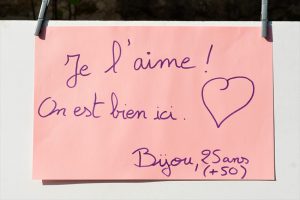 Je l'aime !
On est bien ici.
Bijou, 25 ans
(+50)